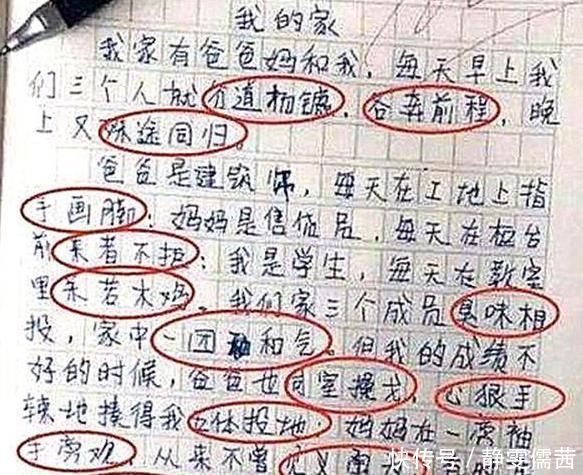 我的家
我家有爸爸妈和我，每天早上我
们三个人就分道扬镳，各奔前程，晚
上又殊途同归。
爸爸是建筑师，每天在工地上指
手画脚；妈妈是售货员，每天在柜台
前来者不拒；我是学生，每天在教室
里呆若木鸡。我们家三个成员臭味相
投，家中一团和气。但我的成绩不
好的时候，爸爸也同室操戈，心狠手
辣地揍得我五体投地，妈妈在一旁袖
手旁观，从来不曾
快传号/静雯儒茜